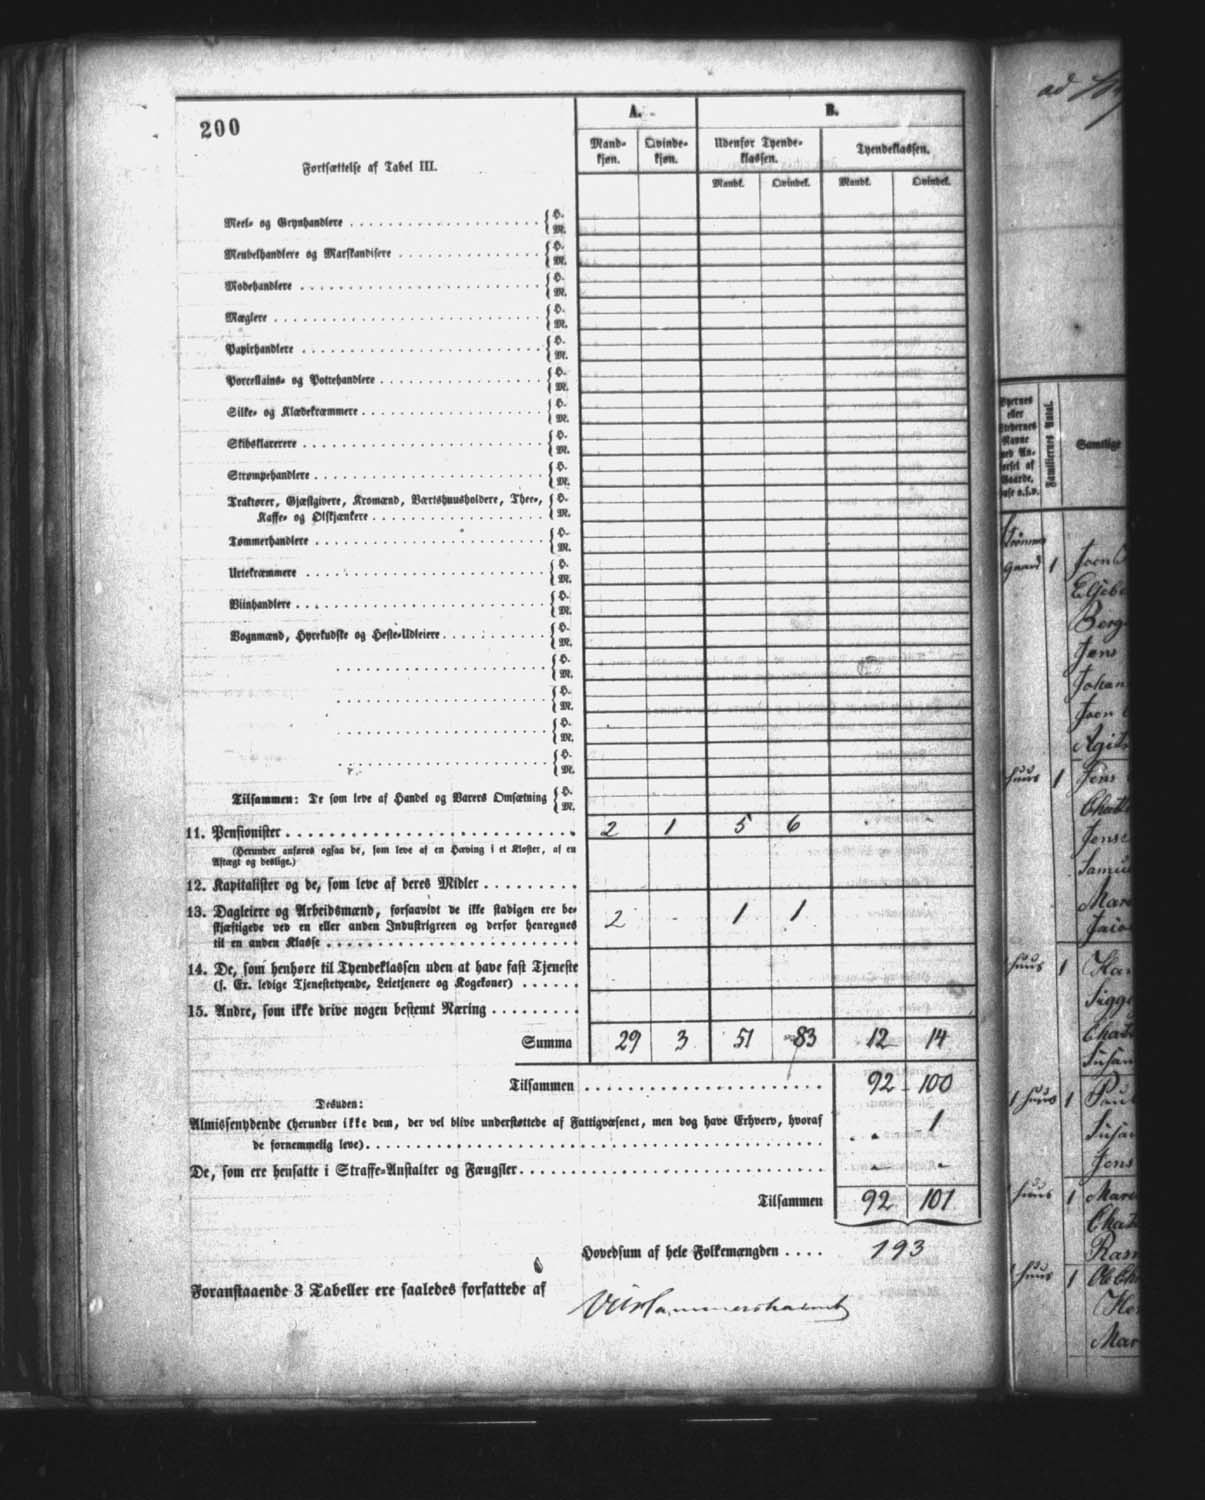 200
Fortsættelse af Tabel III.
A.
B.
Mand-
kjøn.
Qvinde-
kjøn.
Udenfor Tyende-
klassen.
Tyendeklassen.
Mandk.
Qvindek.
Mandk.
Qvindek.
Meel- og Grynhandlere { H.
M.
Meubelhandlere og Marskandisere { H.
M.
Modehandlere { H.
M.
Mæglere { H.
M.
Papirhandlere { H.
M.
Porcellains- og Pottehandlere { H.
M.
Silke- og Klædekræmmere { H.
M.
Skibsklarerere { H.
M.
Strømpehandlere { H.
M.
Traktører, Gjæstgivere, Kromænd, Værtshuusholdere, Thee-, { H.
Kaffe- og Ølskjænkere M.
Tømmerhandlere { H.
M.
Urtekræmmere { H.
M.
Viinhandlere { H.
M.
Vognmænd, Hyrekudske og Heste-Udleiere { H.
M.
{ H.
M.
{ H.
M.
{ H.
M.
{ H.
M.
Tilsammen: De som leve af Handel og Varers Omsætning { H.
M.
11. Pensionister 2 1 5 6 - -
(Herunder anføres ogsaa de, som leve af en Hæving i et Kloster, af en
Aftægt og deslige.)
12. Kapitalister og de, som leve af deres Midler
13. Dagleiere og Arbeidsmænd, forsaavidt de ikke stadigen ere be-
skjæftigede ved en eller anden Industrigreen og derfor henregnes
til en anden Klasse 2 - 1 1
14. De, som henhøre til Tyendeklassen uden at have fast Tjeneste
(f. Ex. ledige Tjenestetyende, Leietjenere og Kogekoner)
15. Andre, som ikke drive nogen bestemt Næring
Summa 29 3 51 83 12 14
Tilsammen 92 100
Desuden:
Almissenydende (herunder ikke dem, der vel blive understøttede af Fattigvæsenet, men dog have Erhverv, hvoraf
de fornemmelig leve) - 1
De, som ere hensatte i Straffe-Anstalter og Fængsler - -
Tilsammen 92 101
Hovedsum af hele Folkemængden 193
Foranstaaende 3 Tabeller ere saaledes forfattede af
ad
Byernes
eller
Stedernes
Navne
med An-
førsel af
Gaarde,
Huse o.s.v.
Familiernes Antal.
Samtlige
Gaard 1
Jens
Johan
huus 1
Jens
huus 1
huus 1
Jens
huus 1
huus 1